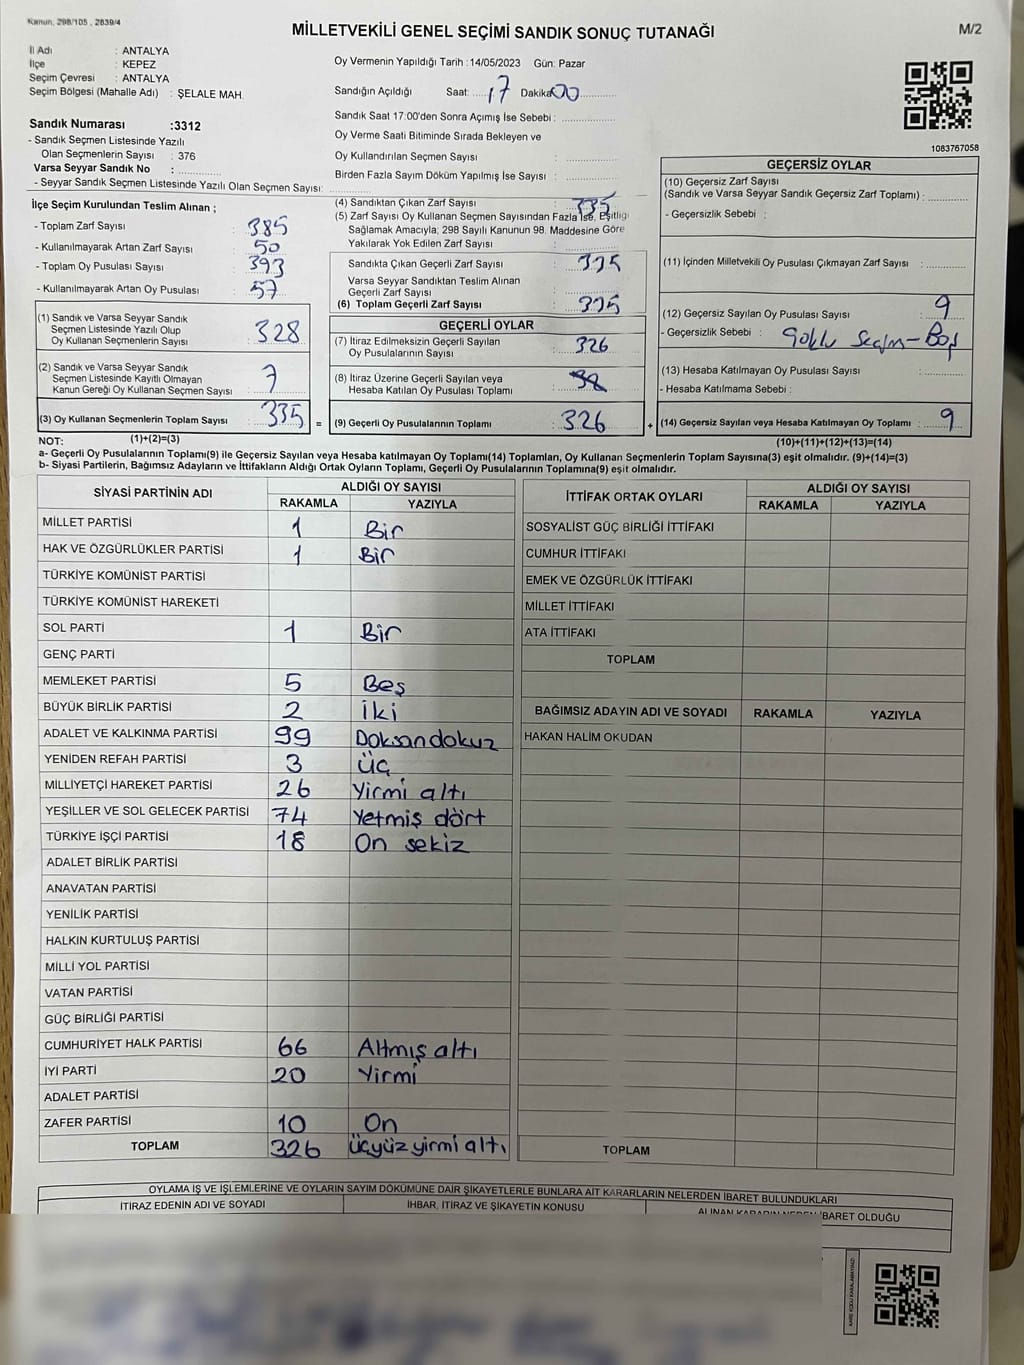 Kanun, 298/105 , 2839/4
MİLLETVEKİLİ GENEL SEÇİMİ SANDIK SONUÇ TUTANAĞI
M/2
İl Adı : ANTALYA
İlçe : KEPEZ
Seçim Çevresi : ANTALYA
Seçim Bölgesi (Mahalle Adı) : ŞELALE MAH.
Oy Vermenin Yapıldığı Tarih :14/05/2023 Gün: Pazar
Sandığın Açıldığı Saat: 17 Dakika: 00
Sandık Saat 17:00'den Sonra Açımış İse Sebebi :
Oy Verme Saati Bitiminde Sırada Bekleyen ve
Oy Kullandırılan Seçmen Sayısı :
Birden Fazla Sayım Döküm Yapılmış İse Sayısı :
1083767058
Sandık Numarası :3312
- Sandık Seçmen Listesinde Yazılı
Olan Seçmenlerin Sayısı : 376
Varsa Seyyar Sandık No :
- Seyyar Sandık Seçmen Listesinde Yazılı Olan Seçmen Sayısı:
İlçe Seçim Kurulundan Teslim Alınan ;
- Toplam Zarf Sayısı : 385
- Kullanılmayarak Artan Zarf Sayısı : 50
- Toplam Oy Pusulası Sayısı : 393
- Kullanılmayarak Artan Oy Pusulası : 57
(1) Sandık ve Varsa Seyyar Sandık
Seçmen Listesinde Yazılı Olup
Oy Kullanan Seçmenlerin Sayısı : 328
(2) Sandık ve Varsa Seyyar Sandık
Seçmen Listesinde Kayıtlı Olmayan
Kanun Gereği Oy Kullanan Seçmen Sayısı : 7
(3) Oy Kullanan Seçmenlerin Toplam Sayısı : 335 =
(4) Sandıktan Çıkan Zarf Sayısı : 335
(5) Zarf Sayısı Oy Kullanan Seçmen Sayısından Fazla İse, Eşitliği
Sağlamak Amacıyla, 298 Sayılı Kanunun 98. Maddesine Göre
Yakılarak Yok Edilen Zarf Sayısı :
Sandıkta Çıkan Geçerli Zarf Sayısı : 335
Varsa Seyyar Sandıktan Teslim Alınan
Geçerli Zarf Sayısı :
(6) Toplam Geçerli Zarf Sayısı : 335
GEÇERLİ OYLAR
(7) İtiraz Edilmeksizin Geçerli Sayılan
Oy Pusulalarının Sayısı : 326
(8) İtiraz Üzerine Geçerli Sayılan veya
Hesaba Katılan Oy Pusulası Toplamı :
(9) Geçerli Oy Pusulalarının Toplamı : 326 +
GEÇERSİZ OYLAR
(10) Geçersiz Zarf Sayısı
(Sandık ve Varsa Seyyar Sandık Geçersiz Zarf Toplamı) :
- Geçersizlik Sebebi :
(11) İçinden Milletvekili Oy Pusulası Çıkmayan Zarf Sayısı :
(12) Geçersiz Sayılan Oy Pusulası Sayısı : 9
- Geçersizlik Sebebi : Çoklu Seçim - Boş
(13) Hesaba Katılmayan Oy Pusulası Sayısı :
- Hesaba Katılmama Sebebi :
(14) Geçersiz Sayılan veya Hesaba Katılmayan Oy Toplamı : 9
NOT: (1)+(2)=(3)
(10)+(11)+(12)+(13)=(14)
a- Geçerli Oy Pusulalarının Toplamı(9) ile Geçersiz Sayılan veya Hesaba katılmayan Oy Toplamı(14) Toplamları, Oy Kullanan Seçmenlerin Toplam Sayısına(3) eşit olmalıdır. (9)+(14)=(3)
b- Siyasi Partilerin, Bağımsız Adayların ve İttifakların Aldığı Ortak Oyların Toplamı, Geçerli Oy Pusulalarının Toplamına(9) eşit olmalıdır.
SİYASİ PARTİNİN ADI
ALDIĞI OY SAYISI
RAKAMLA YAZIYLA
MİLLET PARTİSİ 1 Bir
HAK VE ÖZGÜRLÜKLER PARTİSİ 1 Bir
TÜRKİYE KOMÜNİST PARTİSİ
TÜRKİYE KOMÜNİST HAREKETİ
SOL PARTİ 1 Bir
GENÇ PARTİ
MEMLEKET PARTİSİ 5 Beş
BÜYÜK BİRLİK PARTİSİ 2 İki
ADALET VE KALKINMA PARTİSİ 99 Doksandokuz
YENİDEN REFAH PARTİSİ 3 Üç
MİLLİYETÇİ HAREKET PARTİSİ 26 Yirmi altı
YEŞİLLER VE SOL GELECEK PARTİSİ 74 Yetmiş dört
TÜRKİYE İŞÇİ PARTİSİ 18 On sekiz
ADALET BİRLİK PARTİSİ
ANAVATAN PARTİSİ
YENİLİK PARTİSİ
HALKIN KURTULUŞ PARTİSİ
MİLLİ YOL PARTİSİ
VATAN PARTİSİ
GÜÇ BİRLİĞİ PARTİSİ
CUMHURİYET HALK PARTİSİ 66 Altmış altı
İYİ PARTİ 20 Yirmi
ADALET PARTİSİ
ZAFER PARTİSİ 10 On
TOPLAM 326 üçyüz yirmi altı
İTTİFAK ORTAK OYLARI
ALDIĞI OY SAYISI
RAKAMLA YAZIYLA
SOSYALİST GÜÇ BİRLİĞİ İTTİFAKI
CUMHUR İTTİFAKI
EMEK VE ÖZGÜRLÜK İTTİFAKI
MİLLET İTTİFAKI
ATA İTTİFAKI
TOPLAM
BAĞIMSIZ ADAYIN ADI VE SOYADI RAKAMLA YAZIYLA
HAKAN HALİM OKUDAN
TOPLAM
OYLAMA İŞ VE İŞLEMLERİNE VE OYLARIN SAYIM DÖKÜMÜNE DAİR ŞİKAYETLERLE BUNLARA AİT KARARLARIN NELERDEN İBARET BULUNDUKLARI
İTİRAZ EDENİN ADI VE SOYADI İHBAR, İTİRAZ VE ŞİKAYETİN KONUSU ALINAN KARARIN NEDEN İBARET OLDUĞU